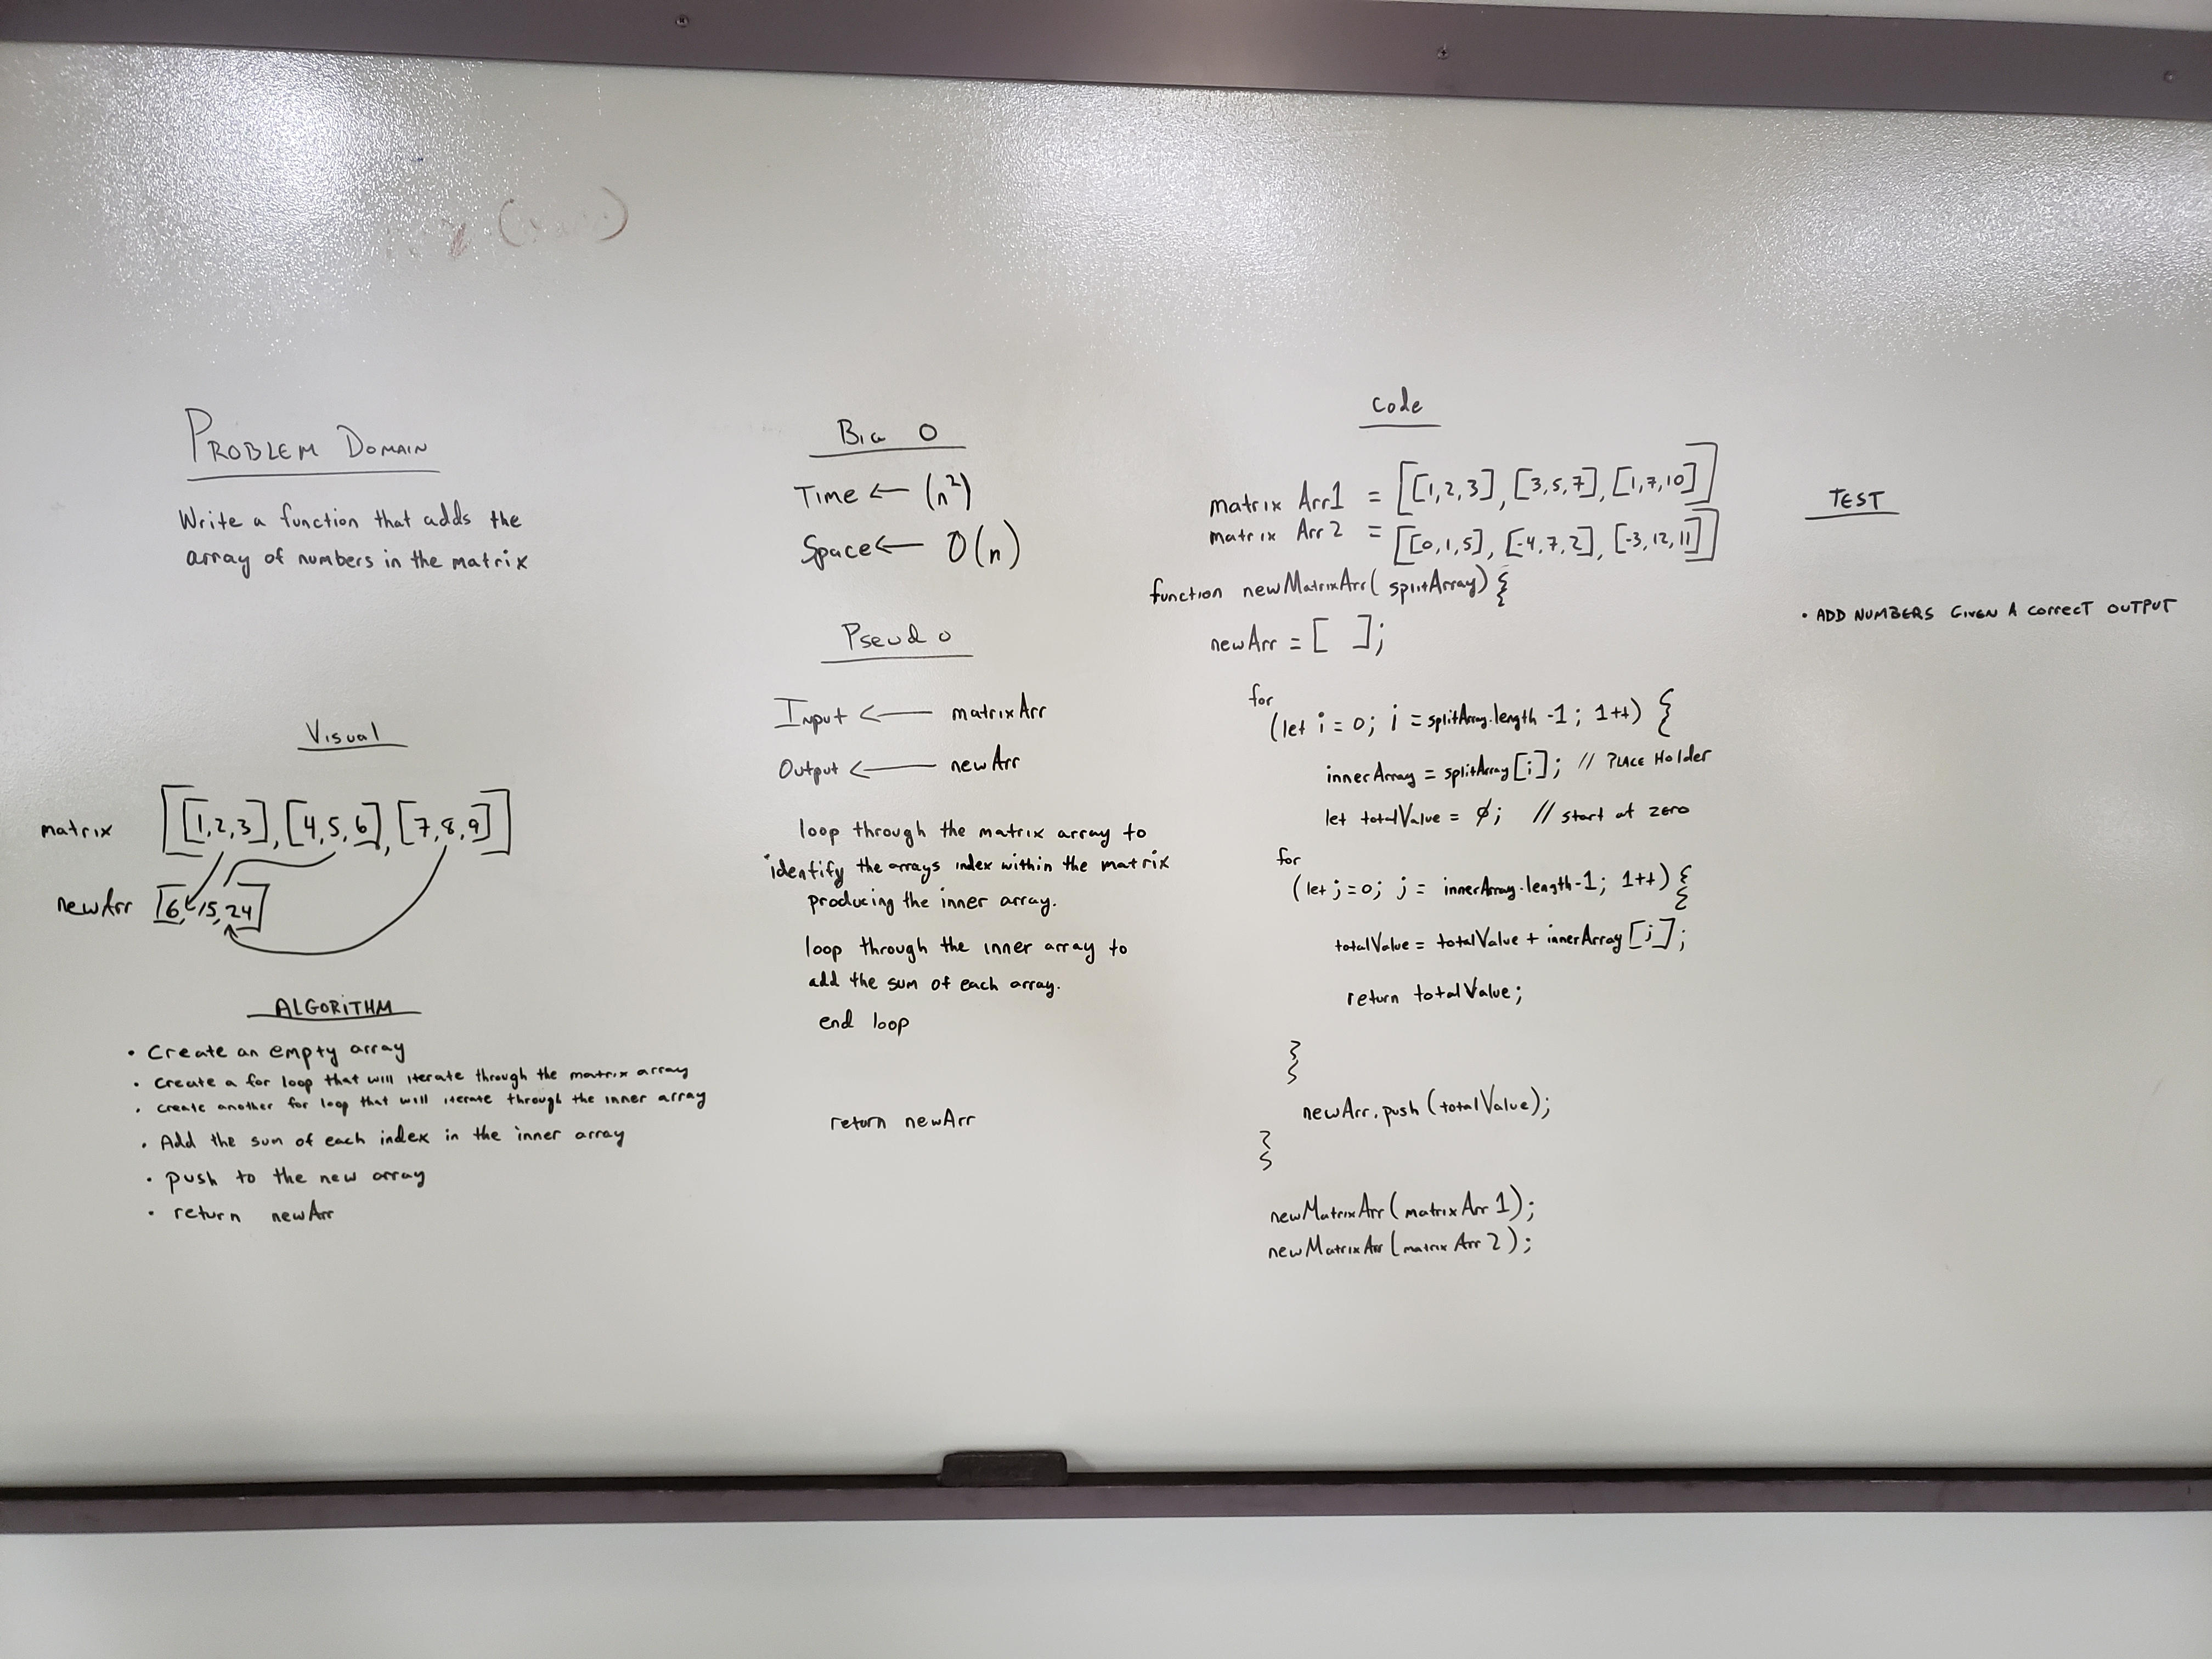 PROBLEM DOMAIN
Write a function that adds the
array of numbers in the matrix
Visual
matrix [[1,2,3],[4,5,6],[7,8,9]]
newArr [6,15,24]
ALGORITHM
• Create an empty array
• create a for loop that will iterate through the matrix array
• create another for loop that will iterate through the inner array
• Add the sum of each index in the inner array
• push to the new array
• return newArr
BIG O
Time ← (n²)
Space ← O(n)
Pseudo
Input ← matrixArr
Output ← newArr
loop through the matrix array to
identify the arrays index within the matrix
producing the inner array.
loop through the inner array to
add the sum of each array.
end loop
return newArr
Code
matrix Arr1 = [[1,2,3],[3,5,7],[1,7,10]]
matrix Arr2 = [[0,1,5],[-4,7,2],[-3,12,11]]
function newMatrixArr(splitArray) {
newArr = [ ];
for
(let i = 0; i = splitArray.length -1; 1++) {
innerArray = splitArray[i]; // PLACE Holder
let totalValue = 0; // start at zero
for
(let j=0; j = innerArray.length-1; 1++) {
totalValue = totalValue + innerArray[j];
return totalValue;
}
newArr.push(totalValue);
}
newMatrixArr(matrixArr1);
newMatrixArr(matrixArr2);
TEST
• ADD NUMBERS GIVEN A CORRECT OUTPUT